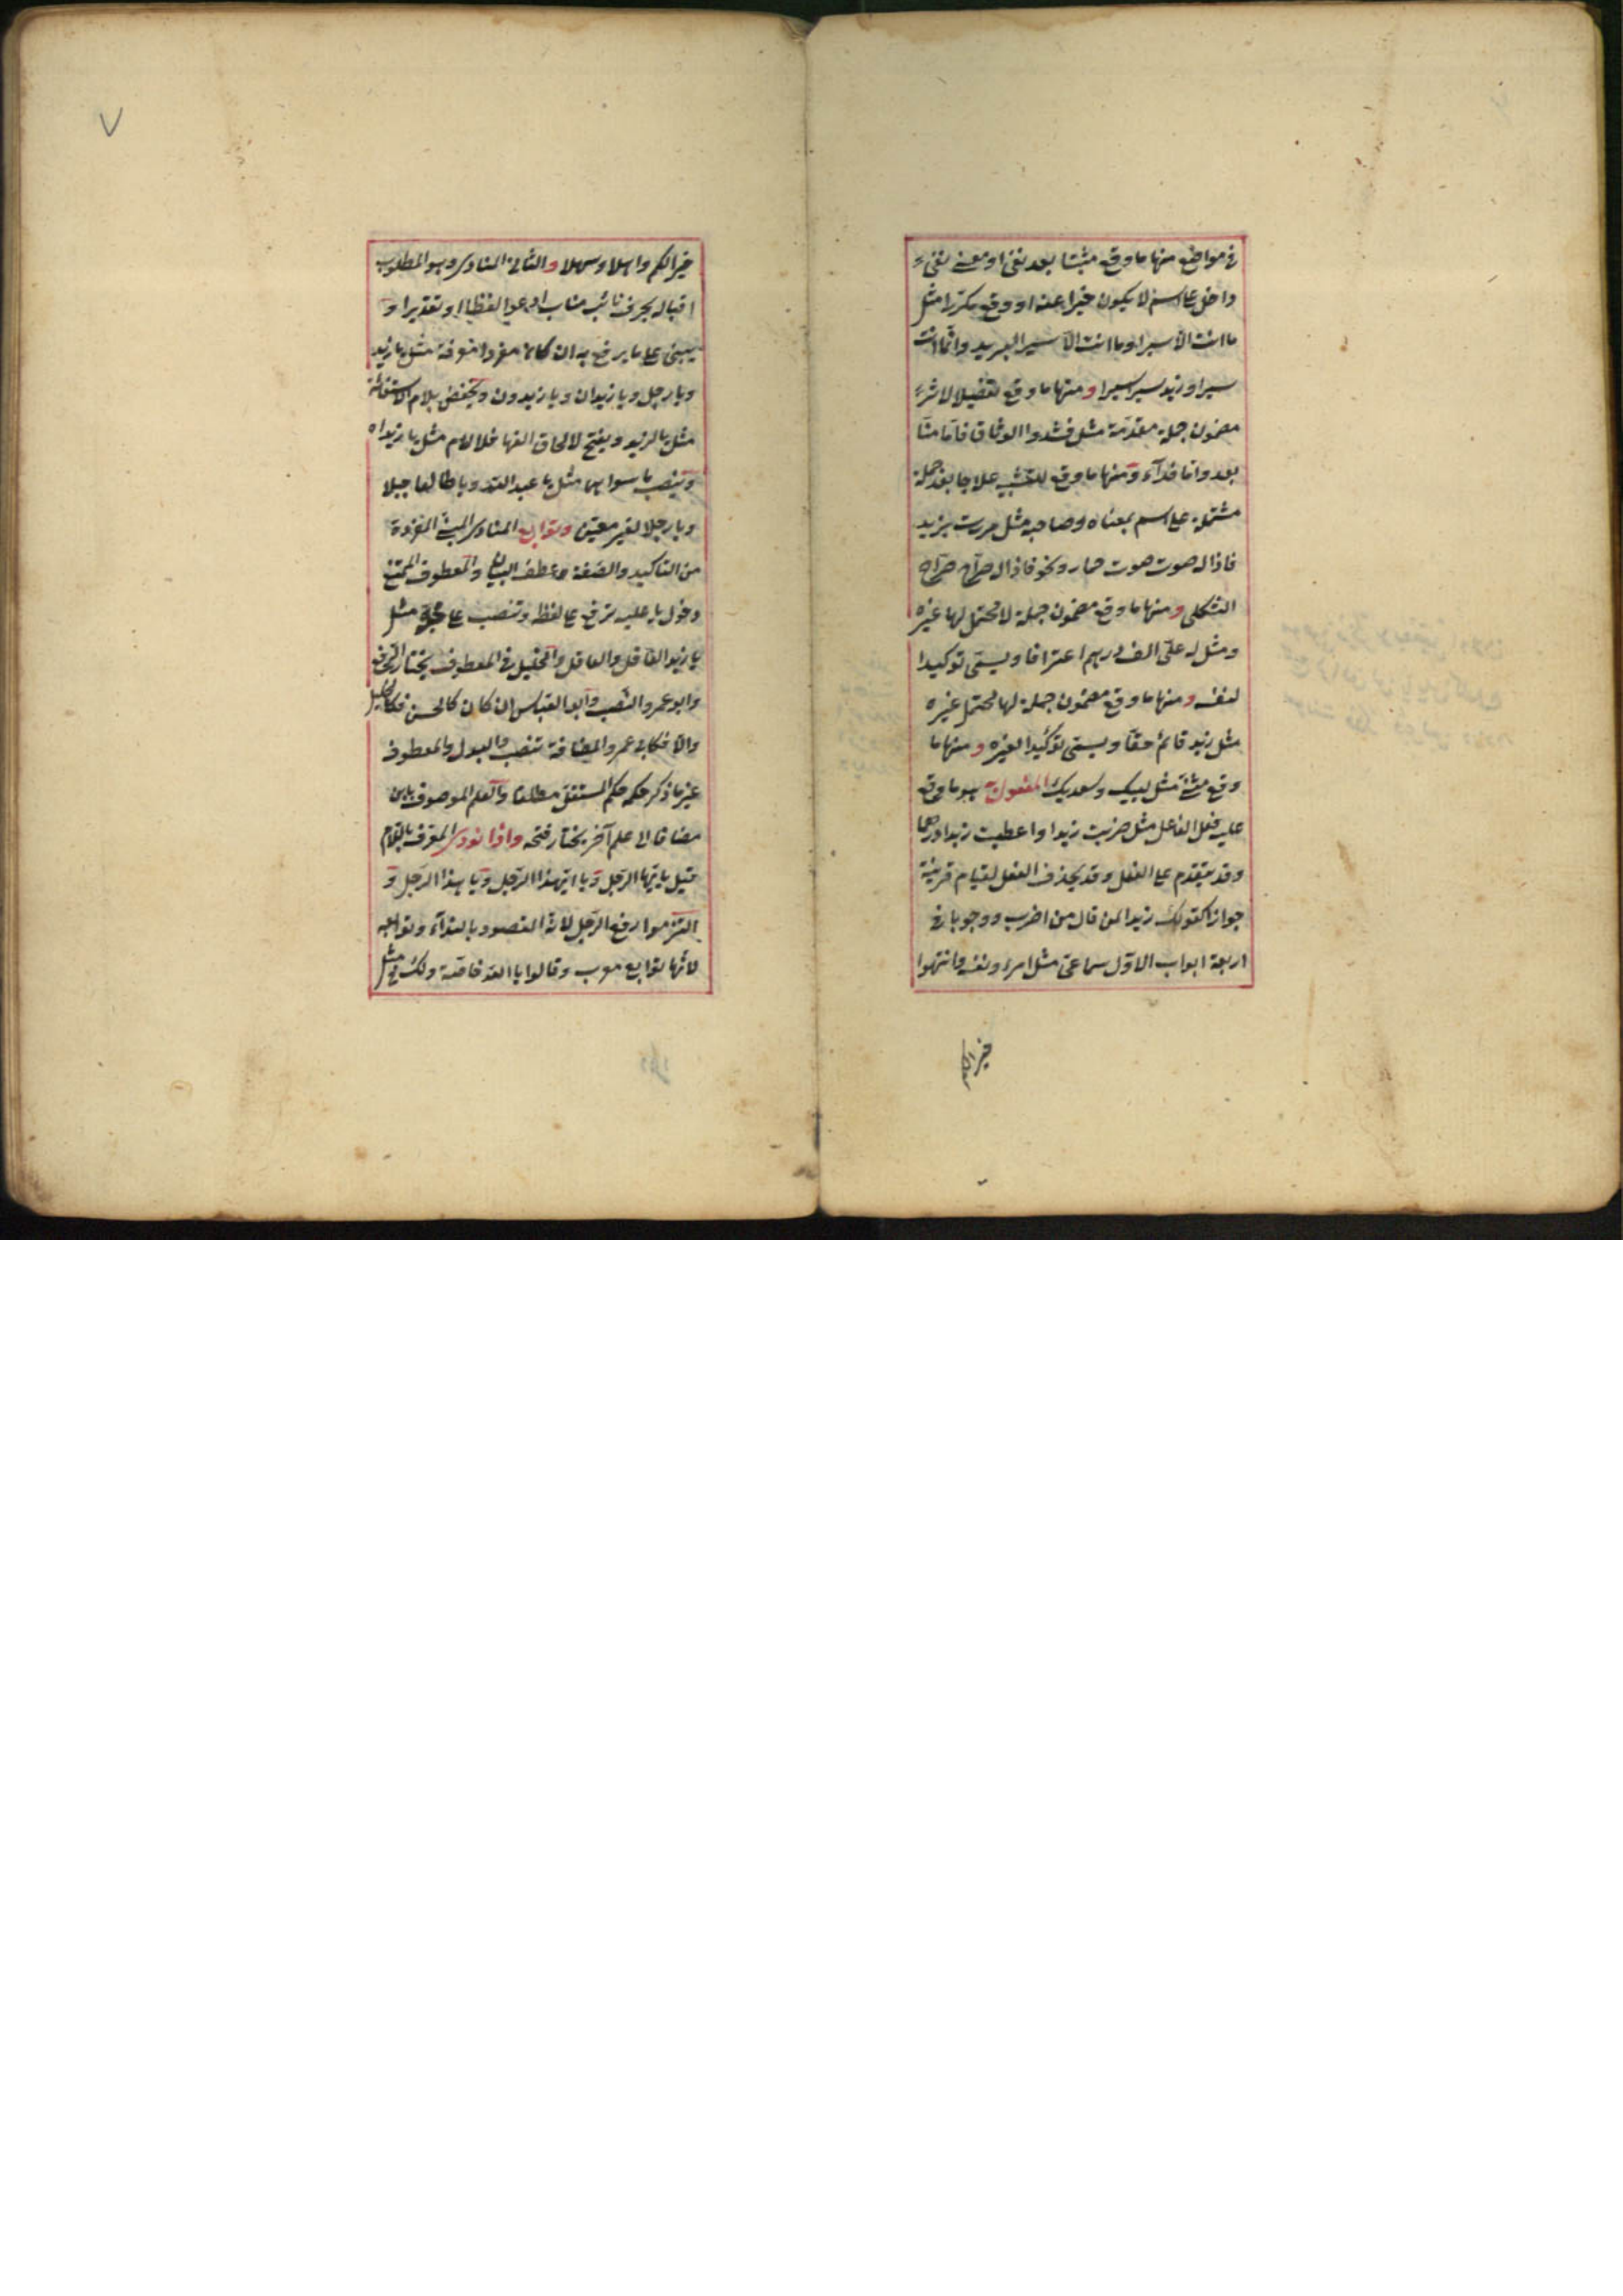 في مواضع منها ما وقع مثبتا بعد نفي او معنى نفي
داخل على اسم لا يكون خبرا عنه او وقع مكررا مثل
ما انت الا سيرا وما انت الا سير البريد وانما انت
سيرا وزيد سيرا سيرا ومنها ما وقع تفصيلا لاثر
مضمون جملة مقدمة مثل فشدوا الوثاق فاما منا
بعد واما فداء ومنها ما وقع للتشبيه علاجا بعد جملة
مشتملة على اسم بمعناه وصاحبه مثل مررت بزيد
فاذا له صوت صوت حمار ونحو فاذا له صراخ صراخ
الثكلى ومنها ما وقع مضمون جملة لا محتمل لها غيره
ومثل له علي الف درهم اعترافا ويسمى توكيدا
لنفسه ومنها ما وقع مضمون جملة لها محتمل غيره
مثل زيد قائم حقا ويسمى توكيدا لغيره ومنها ما
وقع مثنى مثل لبيك وسعديك المفعول به هو ما وقع
عليه فعل الفاعل مثل ضربت زيدا واعطيت زيدا درهما
وقد يتقدم على الفعل وقد يحذف الفعل لقيام قرينة
جوازا كقولك زيدا لمن قال من اضرب ووجوبا في
اربعة ابواب الاول سماعي مثل امرء ونفسه وانتهوا
خيرا لكم
٧
خيرا لكم واهلا وسهلا والثاني المنادى وهو المطلوب
اقباله بحرف نائب مناب ادعو لفظا او تقديرا و
يبنى على ما يرفع به ان كان مفردا معرفة مثل يا زيد
ويا رجل ويا زيدان ويا زيدون ويخفض بلام الاستغاثة
مثل يا لزيد ويفتح لالحاق الفها فلا لام مثل يا زيداه
وينصب ما سواهما مثل يا عبد الله ويا طالعا جبلا
ويا رجلا لغير معين وتوابع المنادى المبني المفردة
من التاكيد والصفة وعطف البيان والمعطوف الممتنع
دخول يا عليه ترفع على لفظه وتنصب على محله مثل
يا زيد العاقل والعاقل والخليل في المعطوف يختار الرفع
وابو عمرو النصب وابو العباس ان كان كالحسن فكالخليل
والا فكابي عمرو والمضافة تنصب والبدل والمعطوف
غير ما ذكر حكمه حكم المستقل مطلقا والعلم الموصوف بابن
مضافا الى علم آخر يختار فتحه واذا نودي المعرف باللام
قيل يا ايها الرجل ويا ايهذا الرجل ويا هذا الرجل و
التزموا رفع الرجل لانه المقصود بالنداء وتوابعه
لانها توابع معرب وقالوا يا الله خاصة ولك في مثل